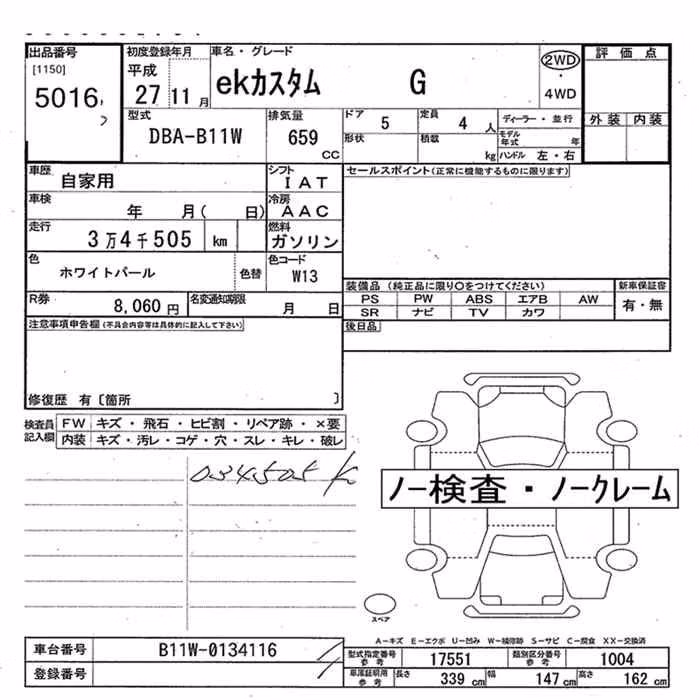 出品番号
[1150]
5016
初度登録年月
平成
27 11月
車名・グレード
ekカスタム G
2WD
・
4WD
評価点
外装 内装
型式
DBA-B11W
排気量
659
CC
ドア 5
定員 4 人
ディーラー・並行
形状
積載 kg
モデル年式 年
ハンドル 左・右
車歴
自家用
シフト
IAT
セールスポイント(正常に機能するものに限ります)
車検
年 月( 日)
冷房
AAC
走行
3万4千505 km
燃料
ガソリン
色
ホワイトパール
色替
色コード
W13
装備品 (純正品に限り〇をつけてください)
新車保証書
PS PW ABS エアB AW
有・無
SR ナビ TV カワ
R券
8,060円
名変通知期限
月 日
後日品
注意事項申告欄(不具合内容等は具体的に記入して下さい)
修復歴 有〔箇所 〕
検査員記入欄
FW キズ・飛石・ヒビ割・リペア跡・×要
内装 キズ・汚レ・コゲ・穴・スレ・キレ・破レ
034505 K
ノー検査・ノークレーム
スペア
A-キズ E-エクボ U-凹み W-補修跡 S-サビ C-腐食 XX-交換済
車台番号
B11W-0134116
型式指定番号
参考
17551
類別区分番号
参考
1004
登録番号
車庫証明用
参考
長さ 339 cm 幅 147 cm 高さ 162 cm